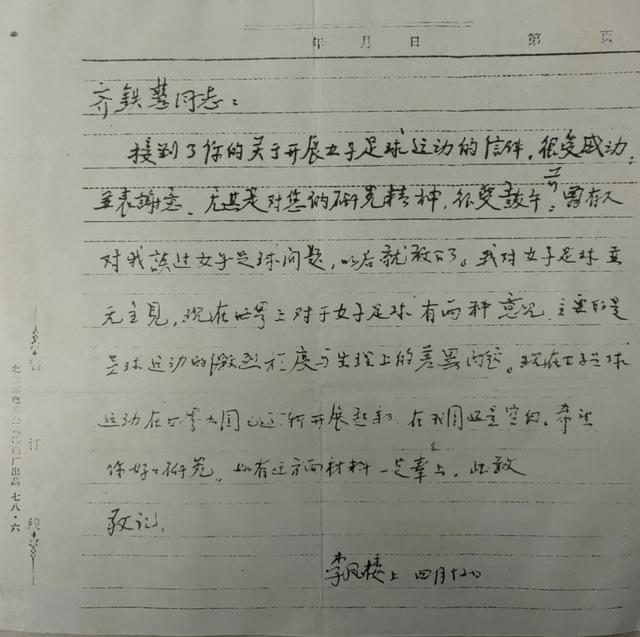 年 月 日 第 页
齐铁慧同志:
接到了你的关于开展女子足球运动的信件,很受感动,
并表謝意。尤其是对您的研究精神,很受鼓午。曾有人
对我談过女子足球问题,以后就散了。我对女子足球並
无主見,现在世界上对于女子足球有两种意见,主要的是
足球运动的激烈程度与生理上的差異问题。现在女子足球
运动在世界各国已逐渐开展起来,在我国还是空白。希望
你好好研究,如有这方面材料一定奉上。此致
敬礼
李凤楼上 四月十二日
装 订 线
厂出品 七八·六